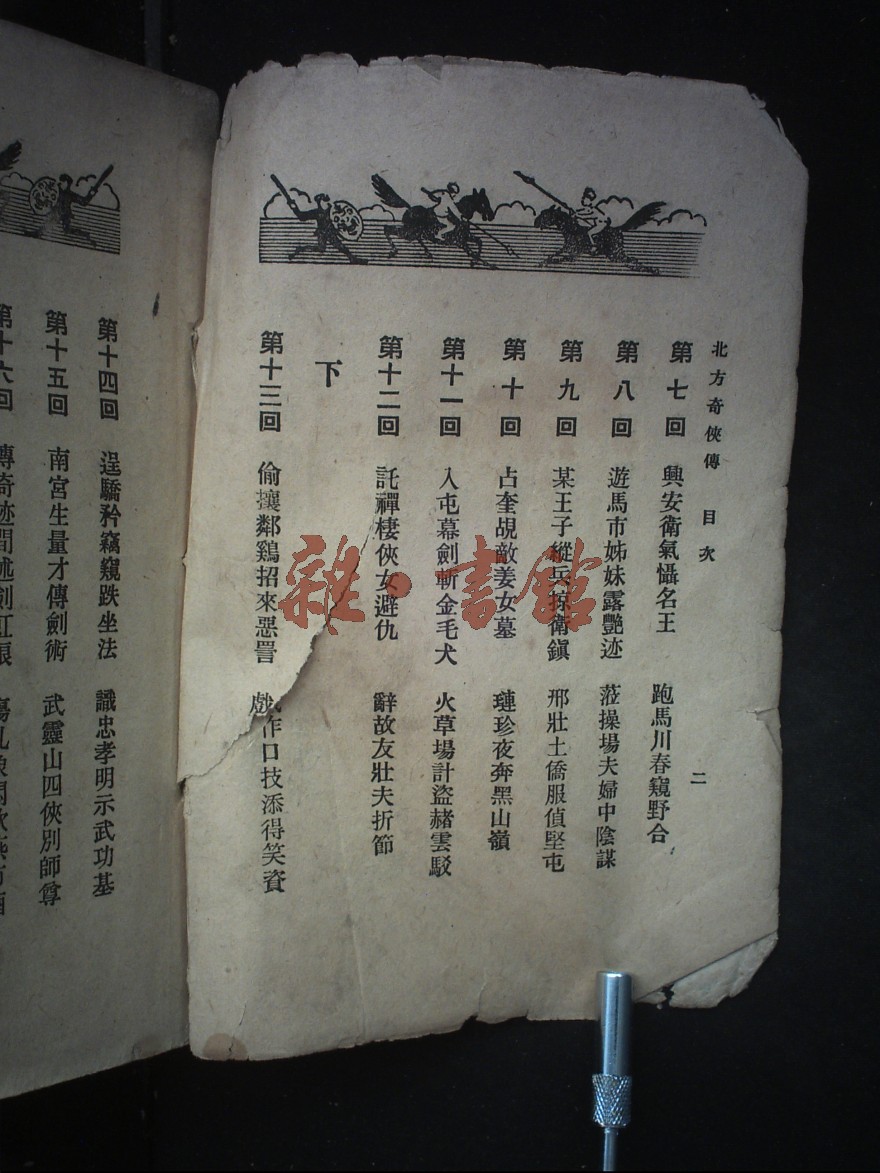 北方奇俠傳 目次 二
第七回 興安衛氣懾名王 跑馬川春窺野合
第八回 遊馬市姊妹露艷迹 蒞操場夫婦中陰謀
第九回 某王子縱兵掠衛鎭 邢壯士僑服偵堅屯
第十回 占奎覘敵姜女墓 璉珍夜奔黑山嶺
第十一回 入屯幕劍斬金毛犬 火草場計盜赭雲駁
第十二回 託禪棲俠女避仇 辭故友壯夫折節
下
第十三回 偷攘鄰鷄招來惡詈 戲作口技添得笑資
第十四回 逞驕矜竊窺跌坐法 識忠孝明示武功基
第十五回 南宮生量才傳劍術 武靈山四俠別師尊
第十六回 傳奇迹間述劍
雜·書館